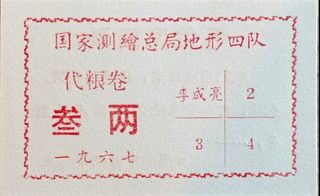 国家测繪总局地形四队
代粮卷
叁两
一九六七
李成亮 2
3 4